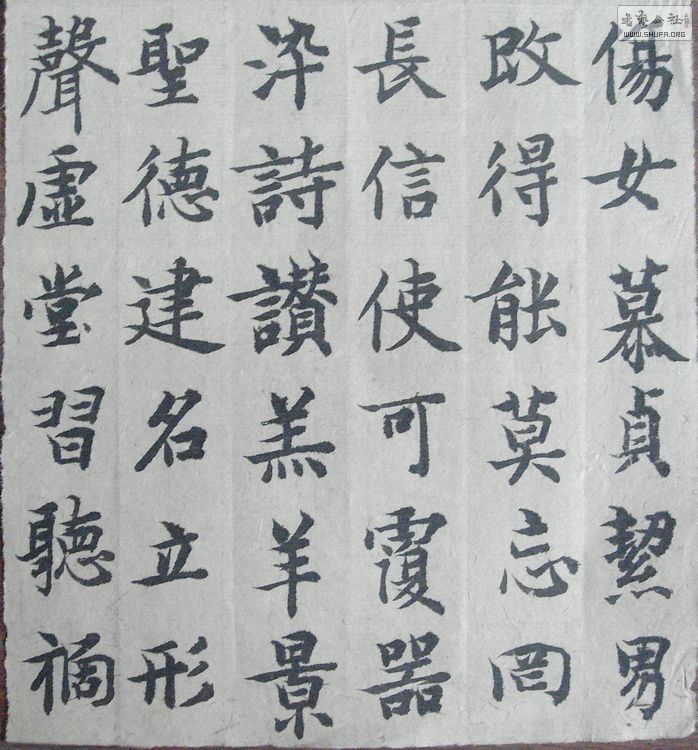 傷女慕貞絜男
改得能莫忘罔
長信使可覆器
染詩讚羔羊景
聖德建名立形
聲虛堂習聽禍
公社
WWW.SHUFA.ORG